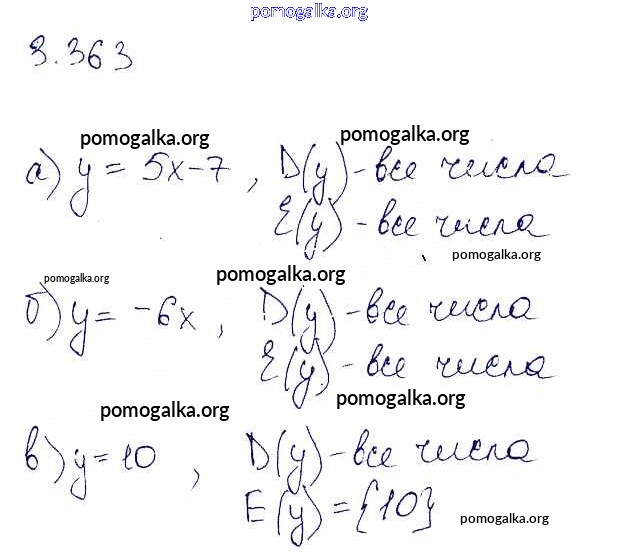 pomogalka.org
3.363
pomogalka.org pomogalka.org
а) y = 5x-7, D(y)-все числа
E(y)-все числа
pomogalka.org
pomogalka.org pomogalka.org
б) y = -6x, D(y)-все числа
E(y)-все числа
pomogalka.org pomogalka.org
в) y=10, D(y)-все числа
E(y)={10}
pomogalka.org